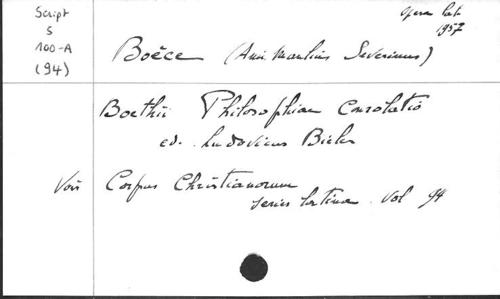 Script
5
100-A
(94)
opera lat.
1957
Boèce (Anii Manlius Severinus)
Boethii Philosophiae Consolatio
ed. Ludovicus Bieler
Voir Corpus Christianorum
series latina. Vol 94